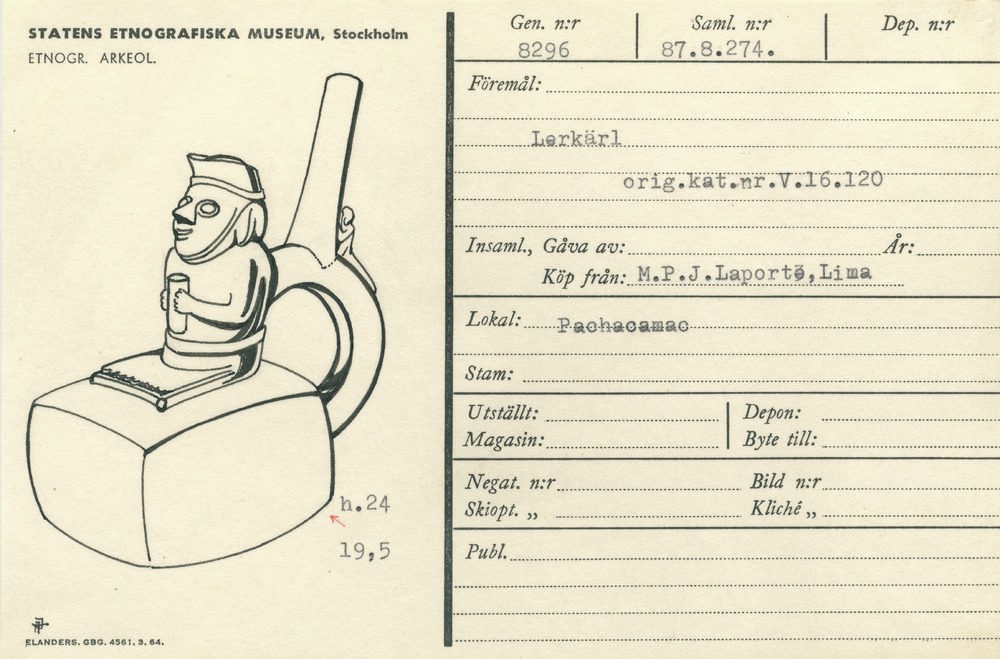 STATENS ETNOGRAFISKA MUSEUM, Stockholm
ETNOGR. ARKEOL.
h.24
19,5
ELANDERS. GBG. 4561. 3. 64.
Gen. n:r
8296
Saml. n:r
87.8.274.
Dep. n:r
Föremål:
Lerkärl
orig.kat.nr.V.16.120
Insaml., Gåva av: År:
Köp från: M.P.J.Laporté,Lima
Lokal: Pachacamac
Stam:
Utställt: Depon:
Magasin: Byte till:
Negat. n:r Bild n:r
Skiopt. „ Kliché „
Publ.